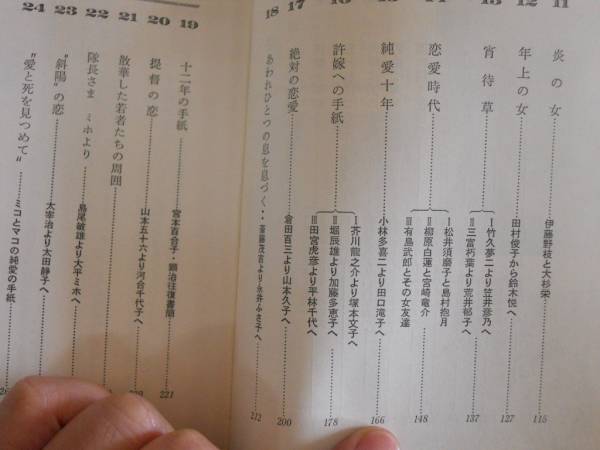 11 炎の女……伊藤野枝と大杉栄 115
12 年上の女……田村俊子から鈴木悦へ 127
13 宵待草 137
Ⅰ竹久夢二より笠井彦乃へ
Ⅱ三富朽葉より荒井郁子へ
14 恋愛時代 148
Ⅰ松井須磨子と島村抱月
Ⅱ柳原白蓮と宮崎竜介
Ⅲ有島武郎とその女友達
15 純愛十年……小林多喜二より田口滝子へ 166
16 許嫁への手紙 178
Ⅰ芥川龍之介より塚本文子へ
Ⅱ堀辰雄より加藤多恵子へ
Ⅲ田宮虎彦より平林千代へ
17 絶対の恋愛……倉田百三より山本久子へ 200
18 あわれひとつの息を息づく……斎藤茂吉より永井ふさ子へ 212
19 十二年の手紙……宮本百合子・顕治往復書簡 221
20 提督の恋……山本五十六より河合千代子へ
21 散華した若者たちの周囲
22 隊長さま ミホより……島尾敏雄より大平ミホへ
23 "斜陽"の恋……太宰治より太田静子へ
24 "愛と死を見つめて"……ミコとマコの純愛の手紙